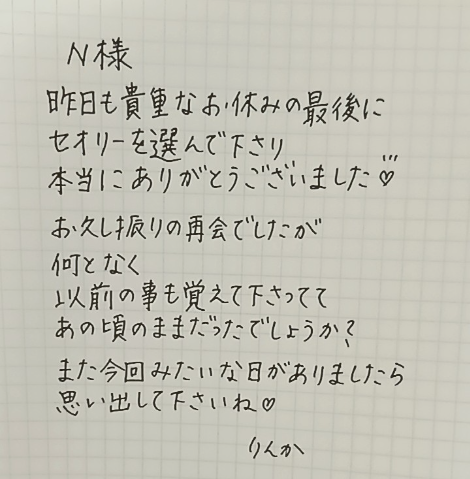 N様
昨日も貴重なお休みの最後に
セオリーを選んで下さり
本当にありがとうございました♡
お久し振りの再会でしたが
何となく
以前の事も覚えて下さってて
あの頃のままだったでしょうか?
また今回みたいな日がありましたら
思い出して下さいね♡
りんか